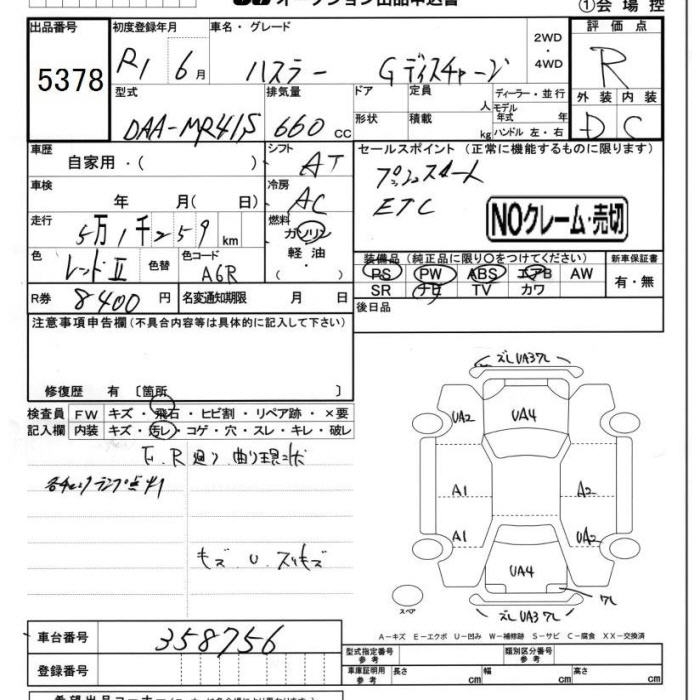 オークション出品申込書
①会場控
出品番号 初度登録年月 車名・グレード 2WD・4WD 評価点
5378 R1 6月 ハスラー Gディスチャージ R
型式 排気量 ドア 定員 人 ディーラー・並行 外装 内装
DAA-MR41S 660 CC 形状 積載 kg モデル年式 年 ハンドル 左・右 D C
車歴 シフト セールスポイント (正常に機能するものに限ります)
自家用・( ) AT プッシュスタート
車検 冷房 ETC
年 月( 日) AC NOクレーム・売切
走行 燃料
5万1千259 km ガソリン
色 色替 色コード 軽油
レッドⅡ A6R ・( )
装備品 (純正品に限り○をつけてください) 新車保証書
PS PW ABS エアB AW 有・無
SR ナビ TV カワ
R券 8400 円 名変通知期限 月 日 後日品
注意事項申告欄(不具合内容等は具体的に記入して下さい)
修復歴 有 〔箇所 〕
検査員 FW キズ・飛石・ヒビ割・リペア跡・×要
記入欄 内装 キズ・汚レ・コゲ・穴・スレ・キレ・破レ
F、R廻り曲り現状
各チェックランプ点灯
キズ U スリキズ
ズレUA3ワレ
UA2 UA4
A1 A2
A1 UA2
UA4
ワレ
スペア
ズレUA3ワレ
A-キズ E-エクボ U-凹み W-補修跡 S-サビ C-腐食 XX-交換済
車台番号 358756
登録番号
型式指定番号 参考 類別区分番号 参考
車庫証明用 参考 長さ cm 幅 cm 高さ cm
希望出品コーナー